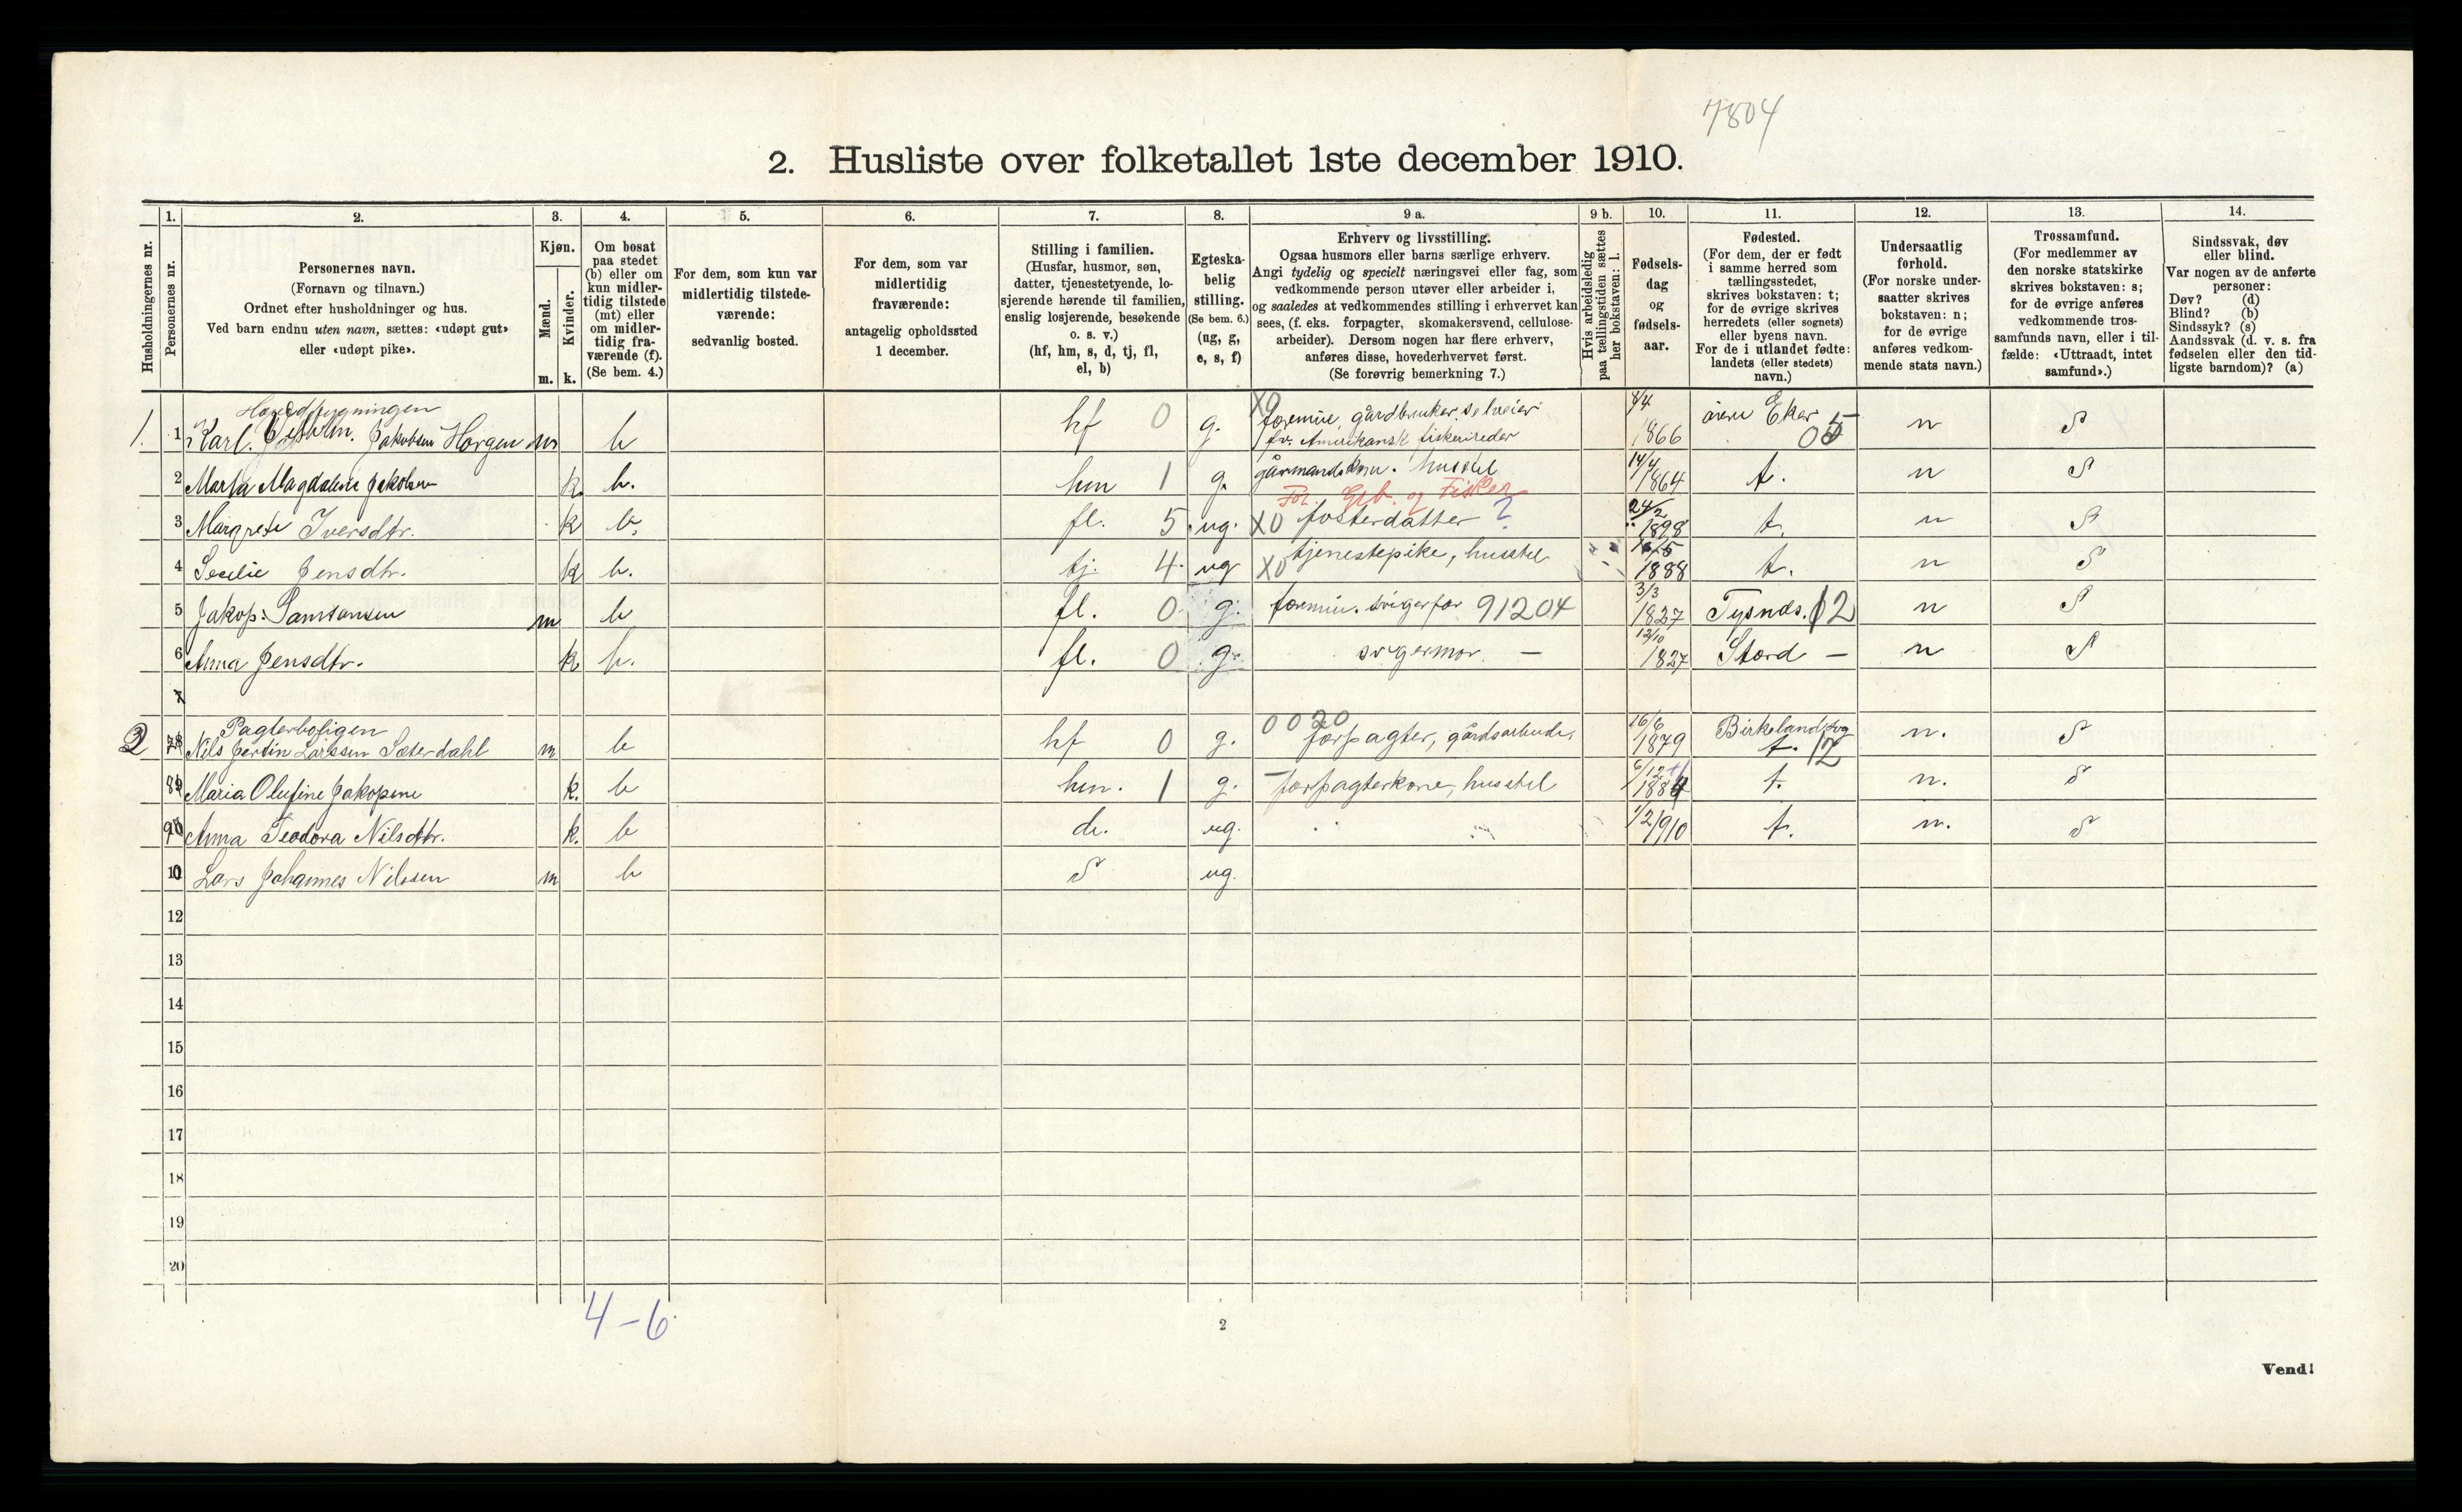 7804
2. Husliste over folketallet 1ste december 1910.
Husholdningernes nr.
1.
Personernes nr.
2.
Personernes navn.
(Fornavn og tilnavn.)
Ordnet efter husholdninger og hus.
Ved barn endnu uten navn, sættes: «udøpt gut»
eller «udøpt pike».
3.
Kjøn.
Mænd.
Kvinder.
m. k.
4.
Om bosat
paa stedet
(b) eller om
kun midler-
tidig tilstede
(mt) eller
om midler-
tidig fra-
værende (f).
(Se bem. 4.)
5.
For dem, som kun var
midlertidig tilstede-
værende:
sedvanlig bosted.
6.
For dem, som var
midlertidig
fraværende:
antagelig opholdssted
1 december.
7.
Stilling i familien.
(Husfar, husmor, søn,
datter, tjenestetyende, lo-
sjerende hørende til familien,
enslig losjerende, besøkende
o. s. v.)
(hf, hm, s, d, tj, fl,
el, b)
8.
Egteska-
belig
stilling.
(Se bem. 6.)
(ug, g,
e, s, f)
9 a.
Erhverv og livsstilling.
Ogsaa husmors eller barns særlige erhverv.
Angi tydelig og specielt næringsvei eller fag, som
vedkommende person utøver eller arbeider i,
og saaledes at vedkommendes stilling i erhvervet kan
sees, (f. eks. forpagter, skomakersvend, cellulose-
arbeider). Dersom nogen har flere erhverv,
anføres disse, hovederhvervet først.
(Se forøvrig bemerkning 7.)
9 b.
Hvis arbeidsledig
paa tællingstiden sættes
her bokstaven: l.
10.
Fødsels-
dag
og
fødsels-
aar.
11.
Fødested.
(For dem, der er født
i samme herred som
tællingsstedet,
skrives bokstaven: t;
for de øvrige skrives
herredets (eller sognets)
eller byens navn.
For de i utlandet fødte:
landets (eller stedets)
navn.)
12.
Undersaatlig
forhold.
(For norske under-
saatter skrives
bokstaven: n;
for de øvrige
anføres vedkom-
mende stats navn.)
13.
Trossamfund.
(For medlemmer av
den norske statskirke
skrives bokstaven: s;
for de øvrige anføres
vedkommende tros-
samfunds navn, eller i til-
fælde: «Uttraadt, intet
samfund».)
14.
Sindssvak, døv
eller blind.
Var nogen av de anførte
personer:
Døv? (d)
Blind? (b)
Sindssyk? (s)
Aandssvak (d. v. s. fra
fødselen eller den tid-
ligste barndom)? (a)
1. 1 Karl. Jakobsen Horgen m b hf 0 g. X0 gårdbruker, selveier 8/4 1866 øvre Eker n S
fv. Amerikansk fiskerireder
2 Marta Magdalene Jakobsen k. b. hm 1 g. husstel 14/4 1864 t. n S
For. Grb. og Fisker
3 Margrete Iversdtr. k b. fl. 5 ug. X0 fosterdatter ? 24/2 1898 t. n S
4 Secelie Jensdtr. k b. tj. 4. ug X0 tjenestepike, husstel 1888 t. n S
5 Jakop Samsonsen m b fl. 0 g. svigerfar 91204 3/3 1827 Tysnes. 12 n S
6 Anna Jensdtr. k b. fl. 0 g. svigermor — 12/10 1827 Stord — n S
7
Pagterboligen
2 Nils Larssen Sæterdahl m b hf 0 g. 0020 forpagter, gårdsarbeider 16/6 1879 Birkeland 12 n. S
8 Maria Olufine Jakopsene k. b hm. 1 g. — forpagterkone, husstel 188 t. n. S
9 Anna Teodora Nilsdtr. k. b d. ug. 1/2 1910 t. n. S
10 Lars Johannes Nilssen m b S ug.
12
13
14
15
16
17
18
19
20
4-6
2
Vend!